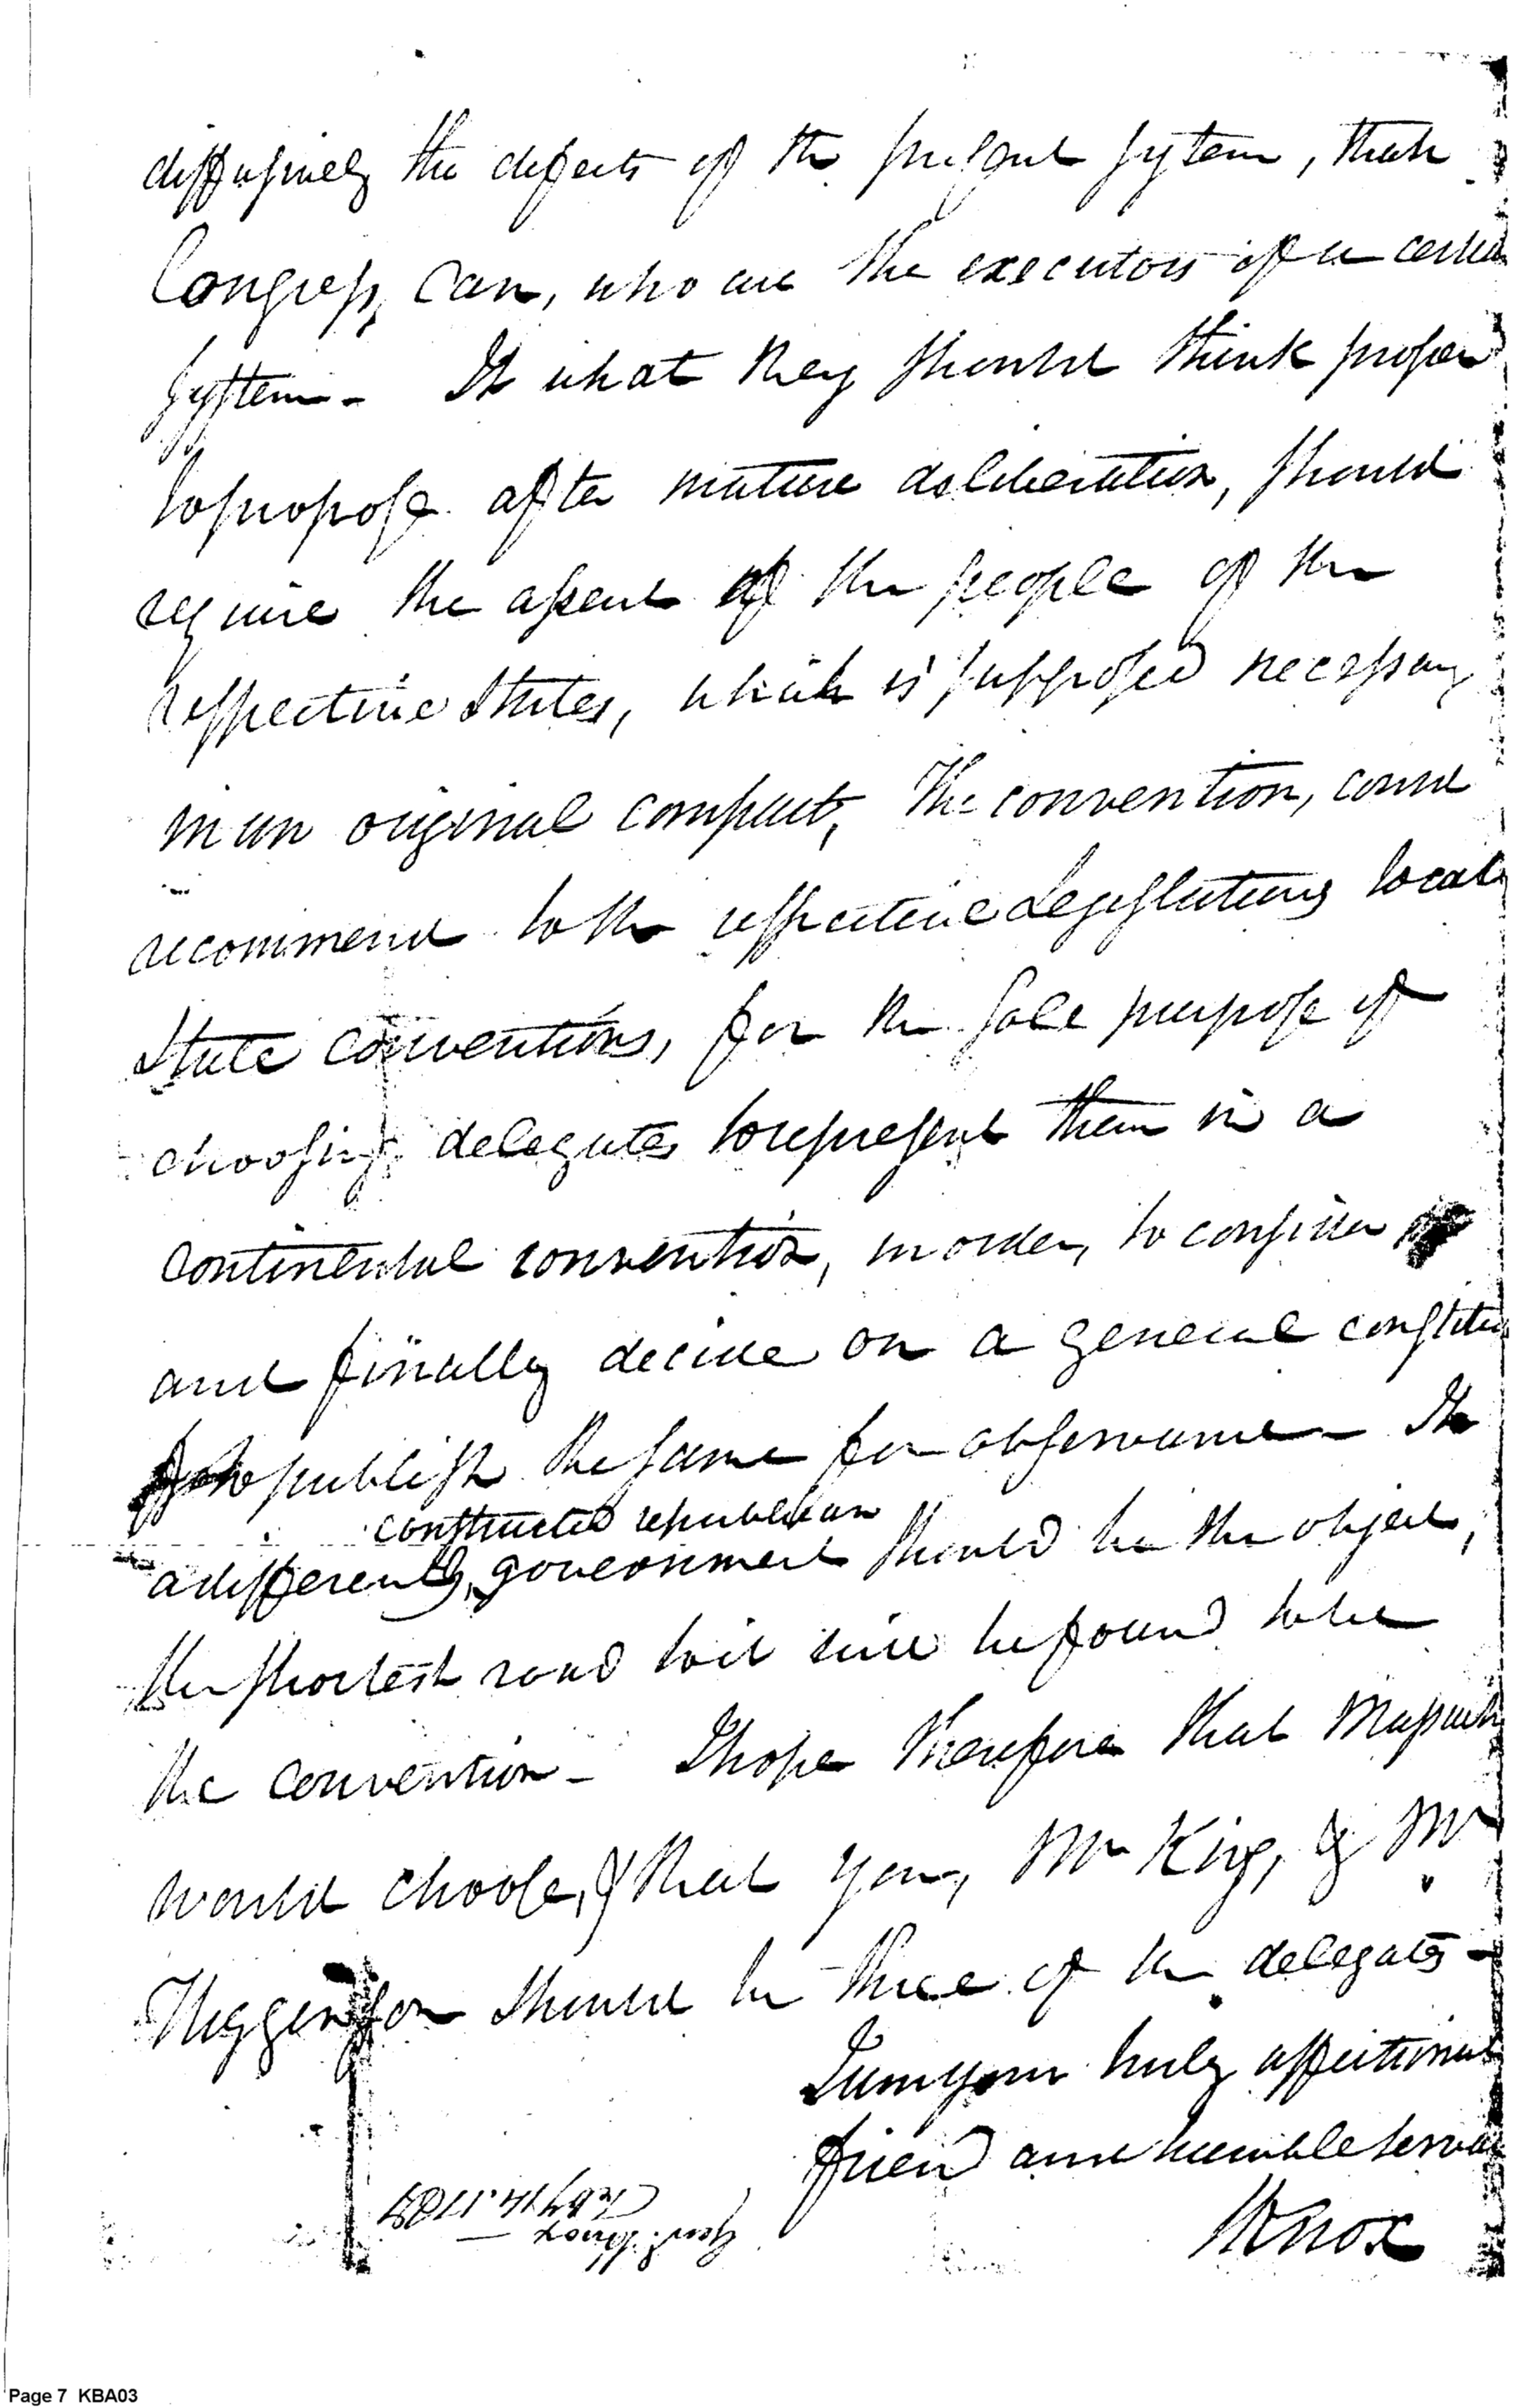 diffusively the defects of the present system, than
Congress can, who are the executors of a certain
system – If what they should think proper
to propose after mature deliberation, should
require the assent of the people of the
respective States, which is supposed necessary
in an original compact, the convention, could
recommend to the respective Legislatures local
State conventions, for the sole purpose of
choosing delegates to represent them in a
continental convention, in order, to consider
and finally decide on a general constitu
to publish the same for observance – If
constructed republican
a differently, government should be the object,
the shortest road to it will be found to be
the convention – I hope therefore that Massach
would choose, & that you, Mr King, & Mr
Higgenson should be three of the delegates –
I am your truly affectionat
friend and humble serva
HKnox
Genl. Knox –
Feby 14. 1787
Page 7 KBA03